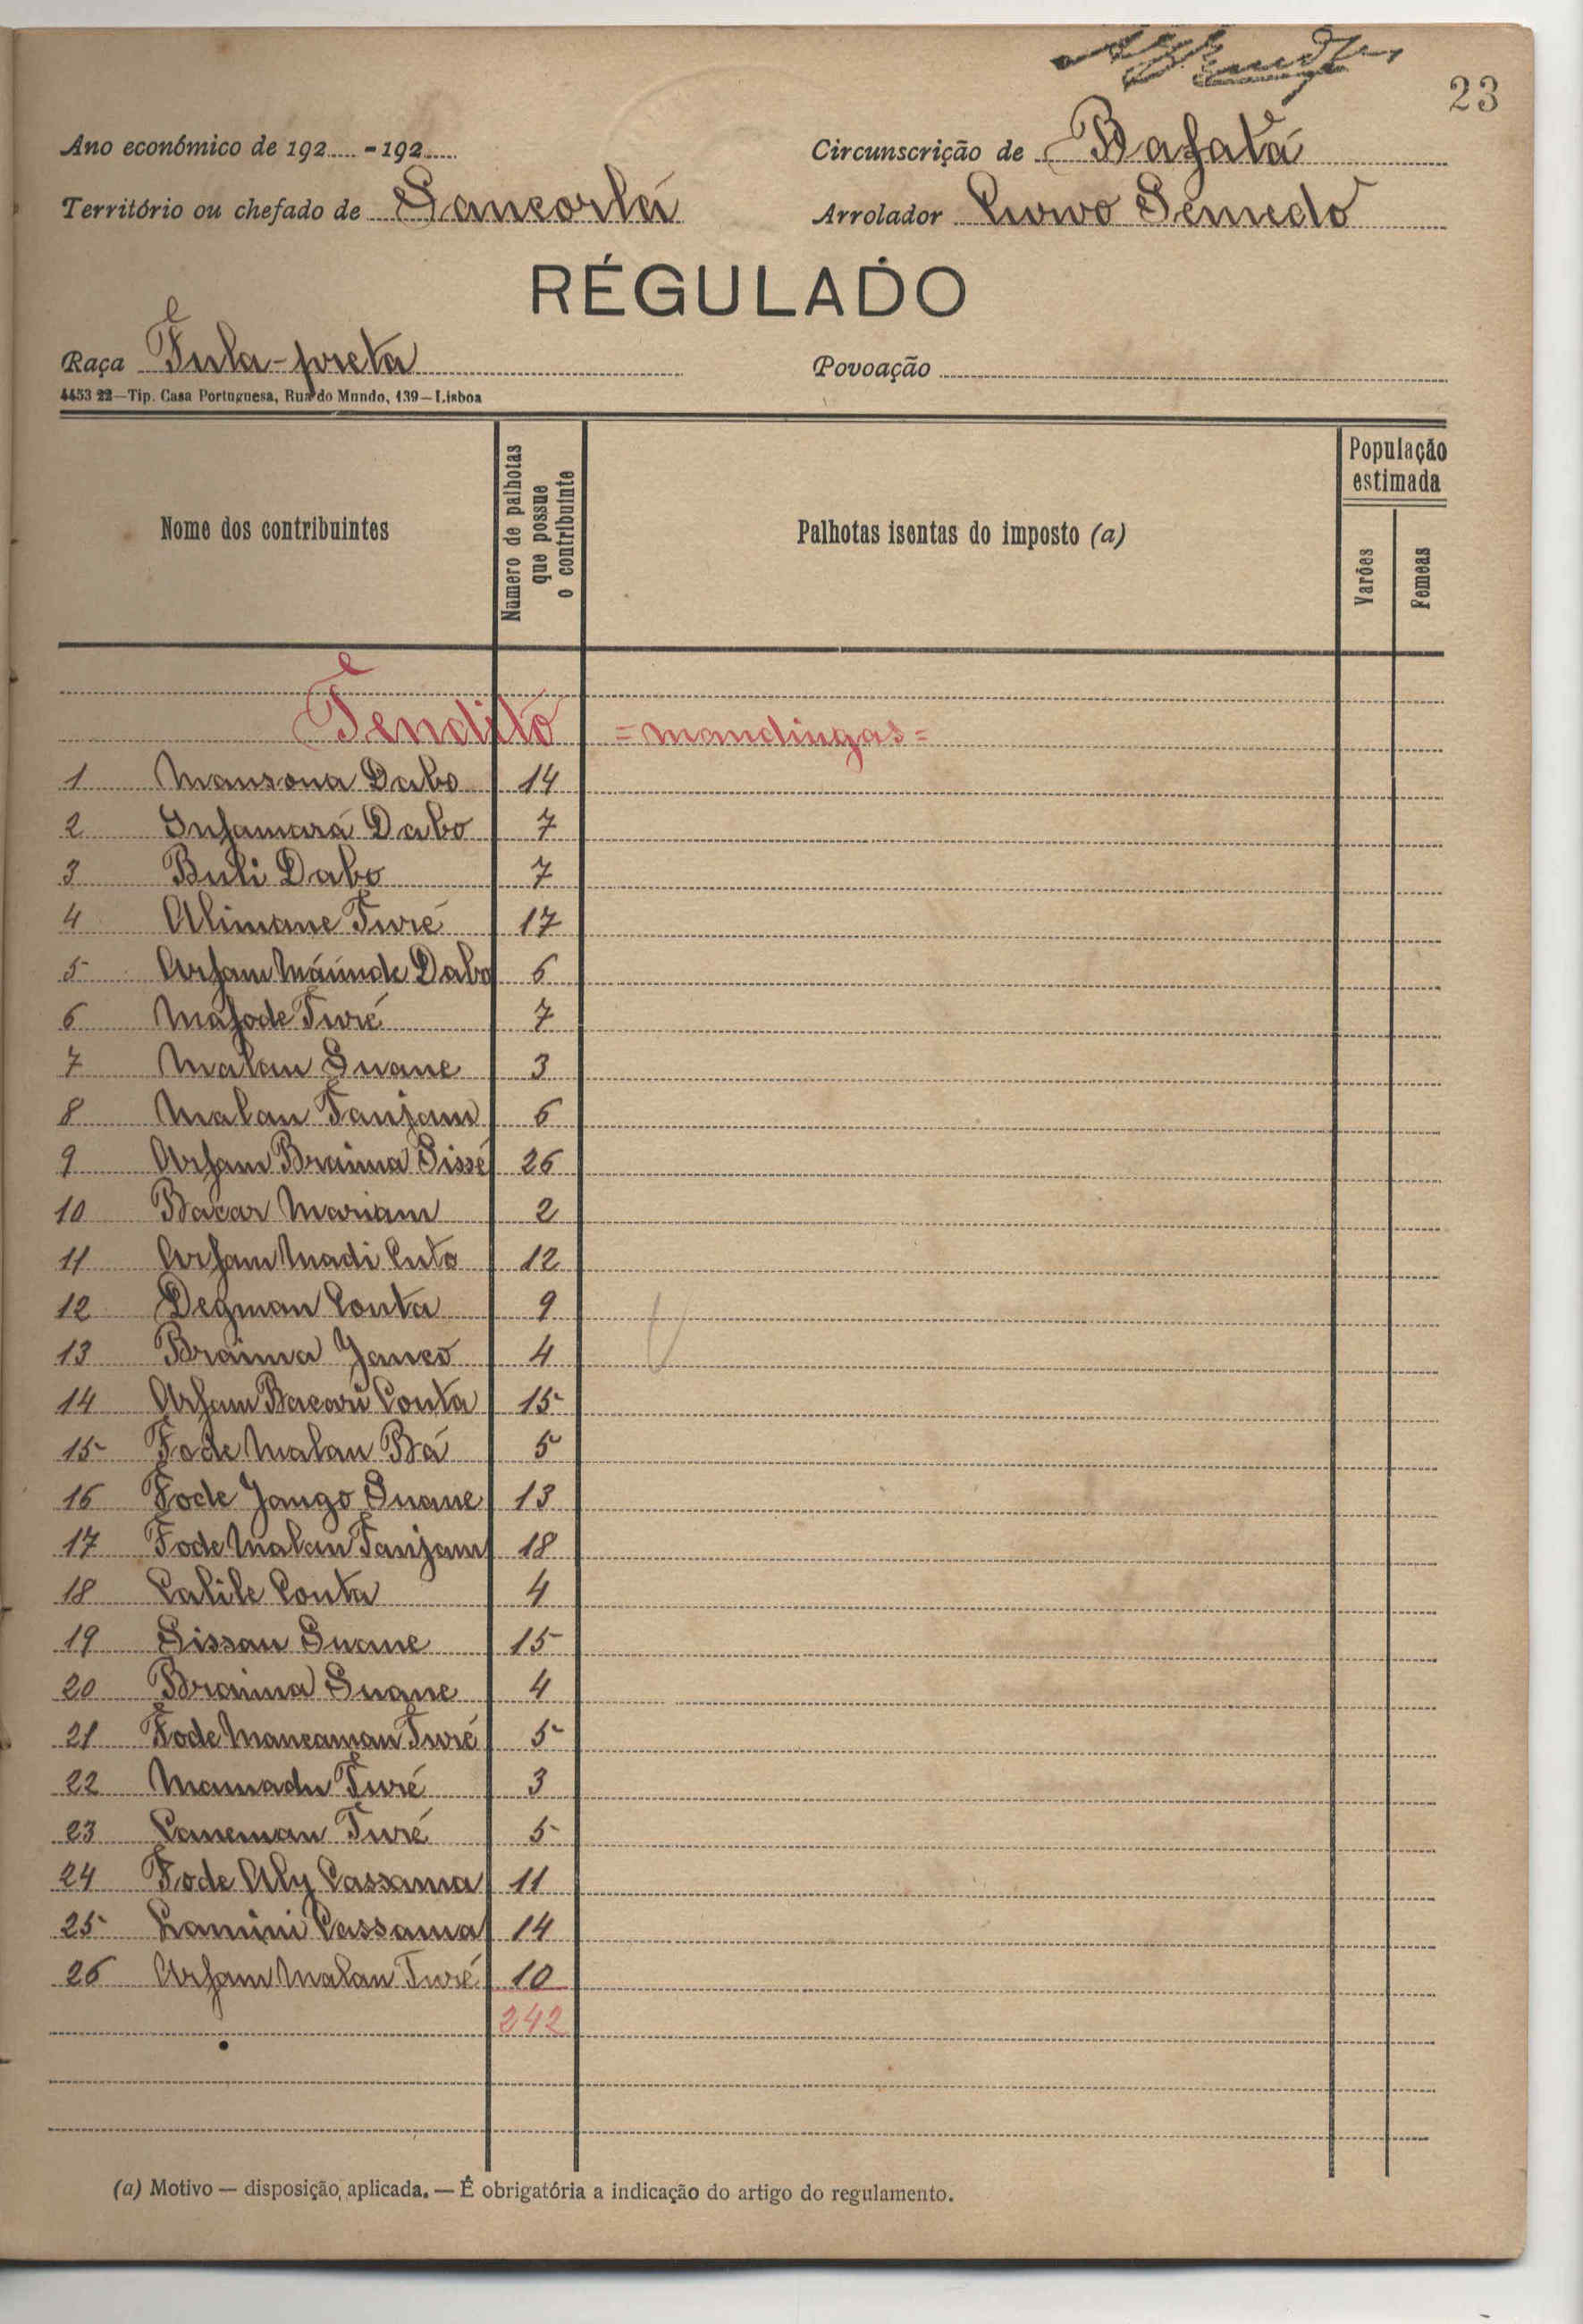 23
Ano económico de 192 - 192
Circunscrição de Bafatá
Território ou chefado de Sancorlá
Arrolador Semedo
RÉGULADO
Raça Fula-preta
Povoação
4453 22—Tip. Casa Portuguesa, Rua do Mundo, 139—Lisboa
Nome dos contribuintes
Numero de palhotas que possue o contribuinte
Palhotas isentas do imposto (a)
População estimada
Varões
Femeas
Tenditó = mandingas =
1 Mansona Dabo 14
2 Infamará Dabo 7
3 Buli Dabo 7
4 Alimane Turé 17
5 Arfam Máúnde Dabo 6
6 Mafode Turé 7
7 Malan Suane 3
8 Malan Fanjam 6
9 Arfam Braima Sissé 26
10 Bacar Mariam 2
11 Arfam Madi Cuto 12
12 Degman Conta 9
13 Braima Janco 4
14 Arfam Bacari Conta 15
15 Fode Malan Bá 5
16 Fode Jango Suane 13
17 Fode Malan Fanjam 18
18 Calile Conta 4
19 Sissau Suane 15
20 Braima Suane 4
21 Fode Mancaman Turé 5
22 Mamadu Turé 3
23 Caneman Turé 5
24 Fode Aly Cassama 11
25 Lamini Cassama 14
26 Arfam Malan Turé 10
242
(a) Motivo — disposição aplicada. — É obrigatória a indicação do artigo do regulamento.